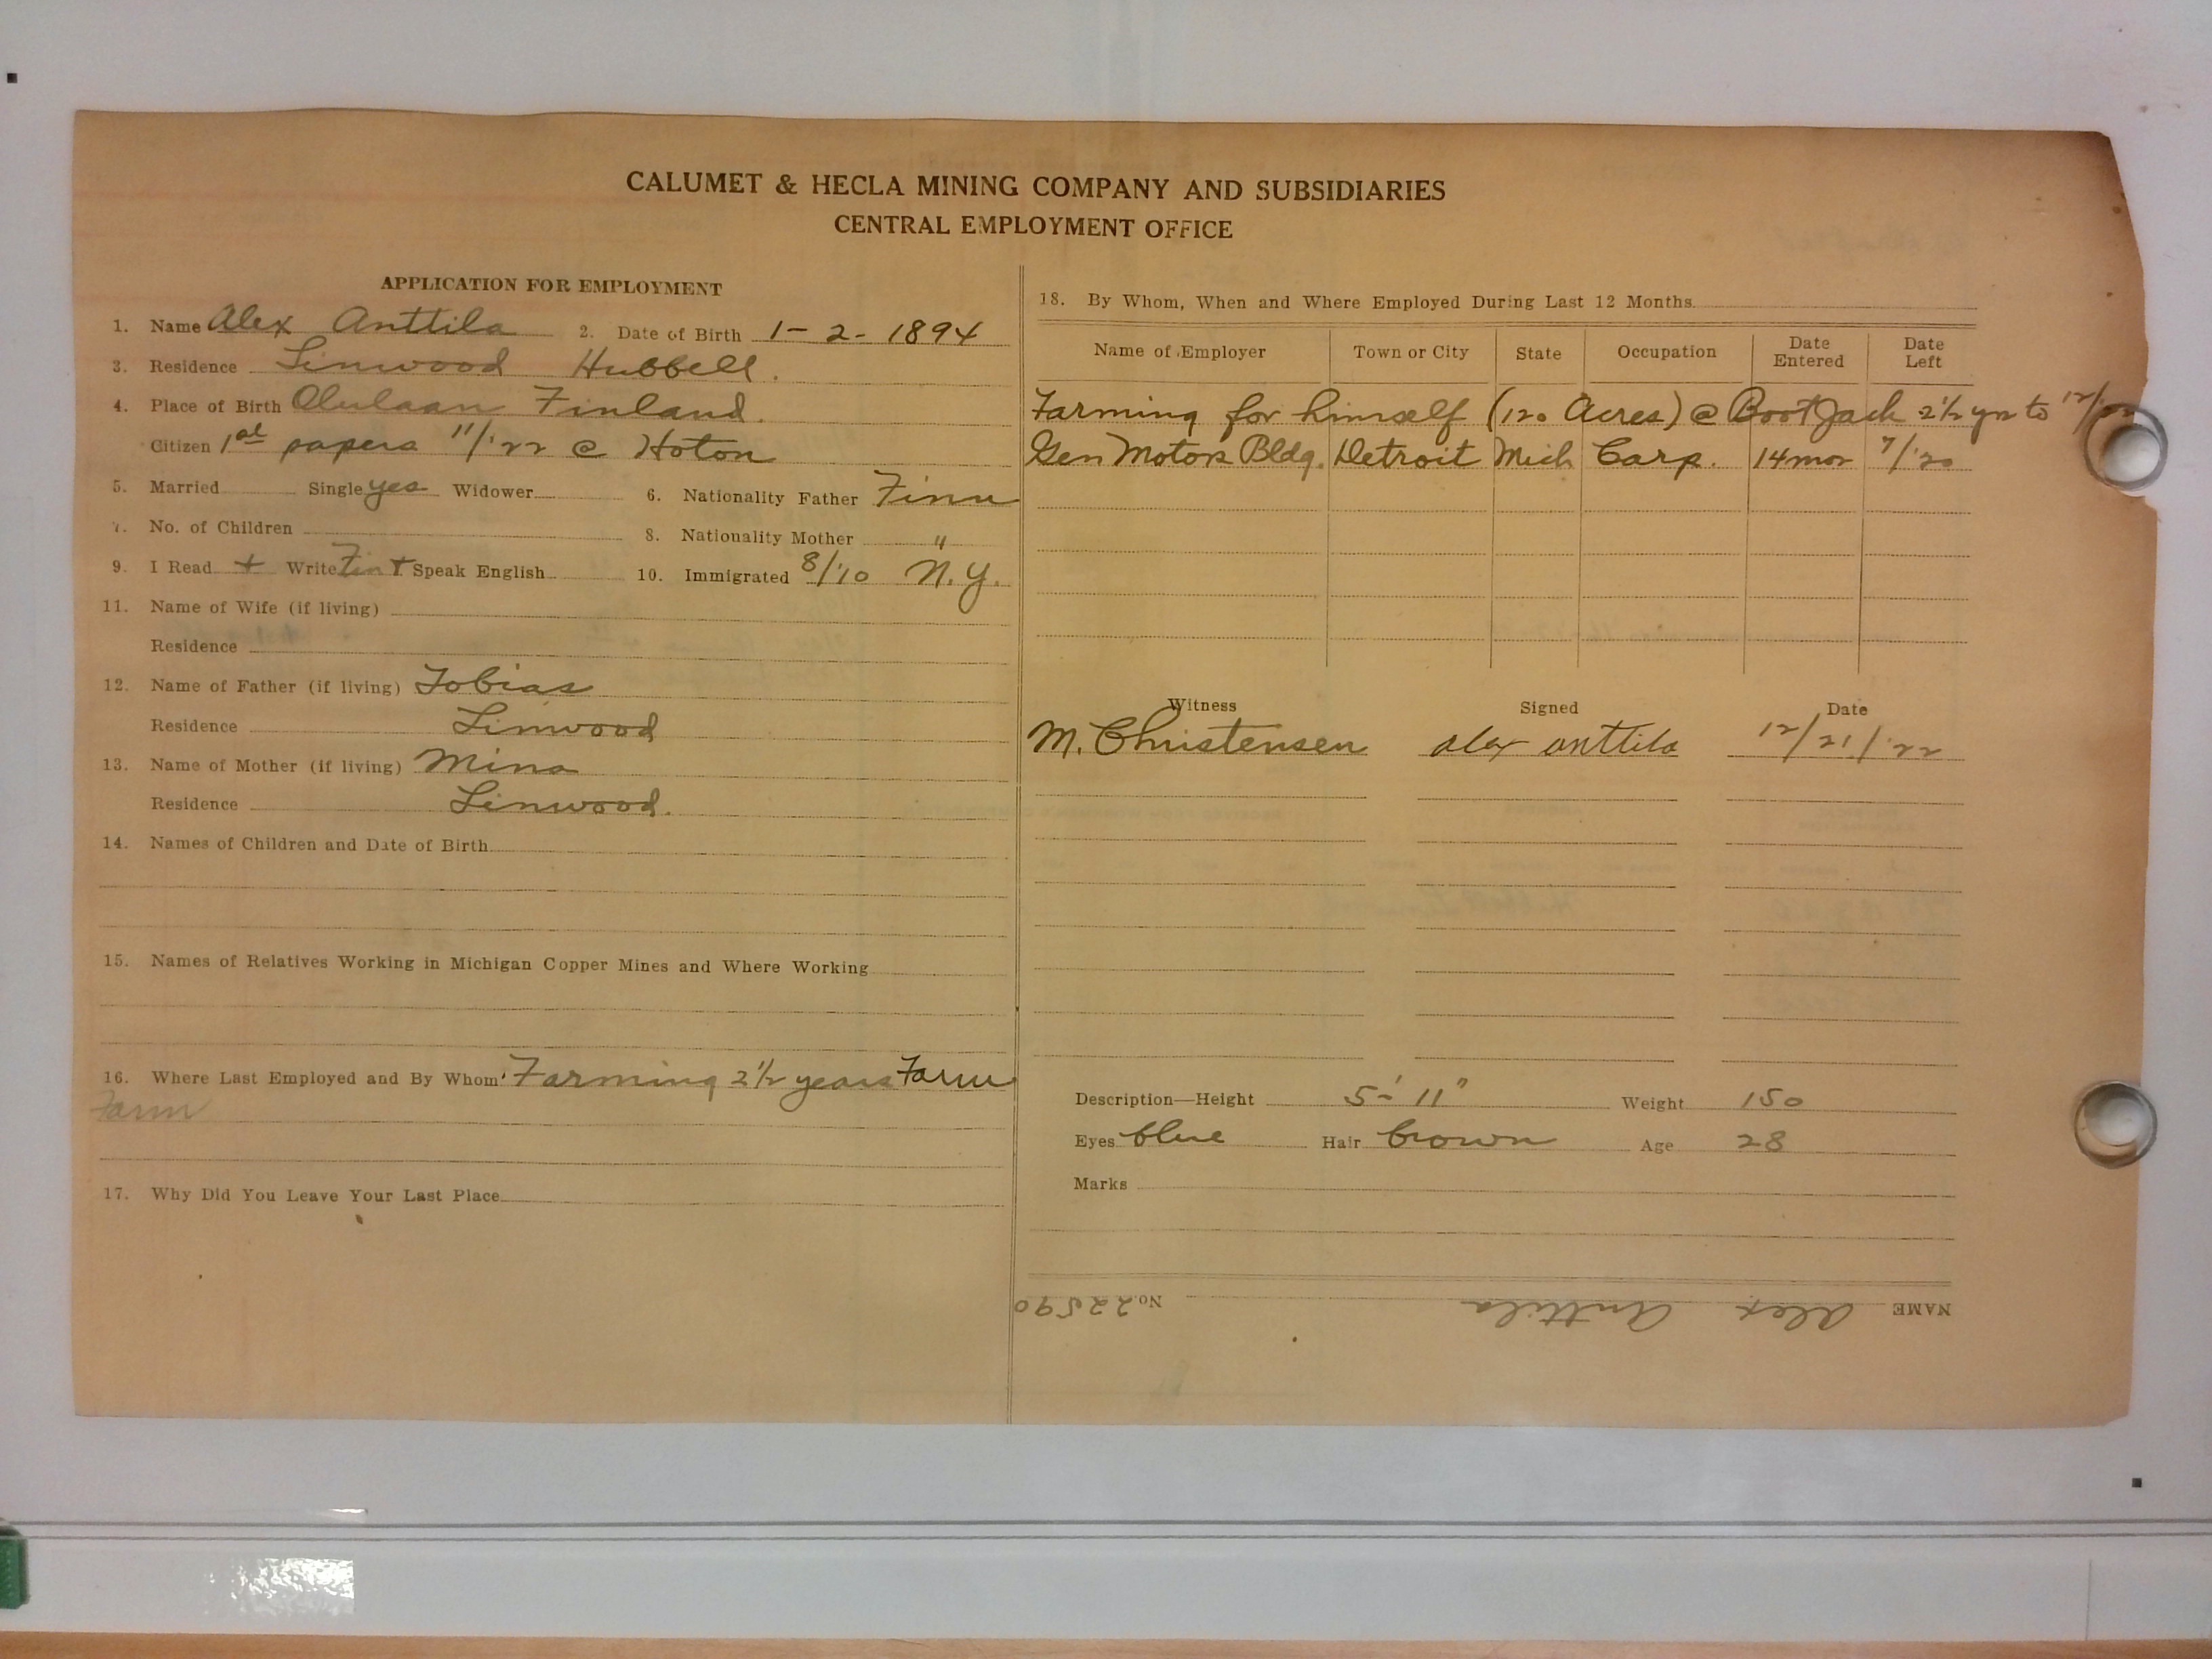 CALUMET & HECLA MINING COMPANY AND SUBSIDIARIES
CENTRAL EMPLOYMENT OFFICE
APPLICATION FOR EMPLOYMENT
1. Name Alex Anttila 2. Date of Birth 1-2-1894
3. Residence Linwood Hubbell.
4. Place of Birth Finland.
Citizen 1st papers 11/'22 @ Hoton
5. Married Single yes Widower 6. Nationality Father Finn
7. No. of Children 8. Nationality Mother "
9. I Read + Write Fin + Speak English 10. Immigrated 8/'10 N.Y.
11. Name of Wife (if living)
Residence
12. Name of Father (if living) Tobias
Residence Linwood
13. Name of Mother (if living) Mina
Residence Linwood.
14. Names of Children and Date of Birth
15. Names of Relatives Working in Michigan Copper Mines and Where Working
16. Where Last Employed and By Whom Farming 2½ years Farm
Farm
17. Why Did You Leave Your Last Place
18. By Whom, When and Where Employed During Last 12 Months.
Name of Employer Town or City State Occupation Date Entered Date Left
Farming for himself (120 Acres) @ Boot Jack 2½ yrs to 12/'22
Gen Motors Bldg. Detroit Mich Carp. 14 mos 7/'20
Witness Signed Date
M. Christensen alex anttila 12/21/'22
Description—Height 5' 11" Weight 150
Eyes blue Hair brown Age 28
Marks
NAME Alex Anttila No. 22590